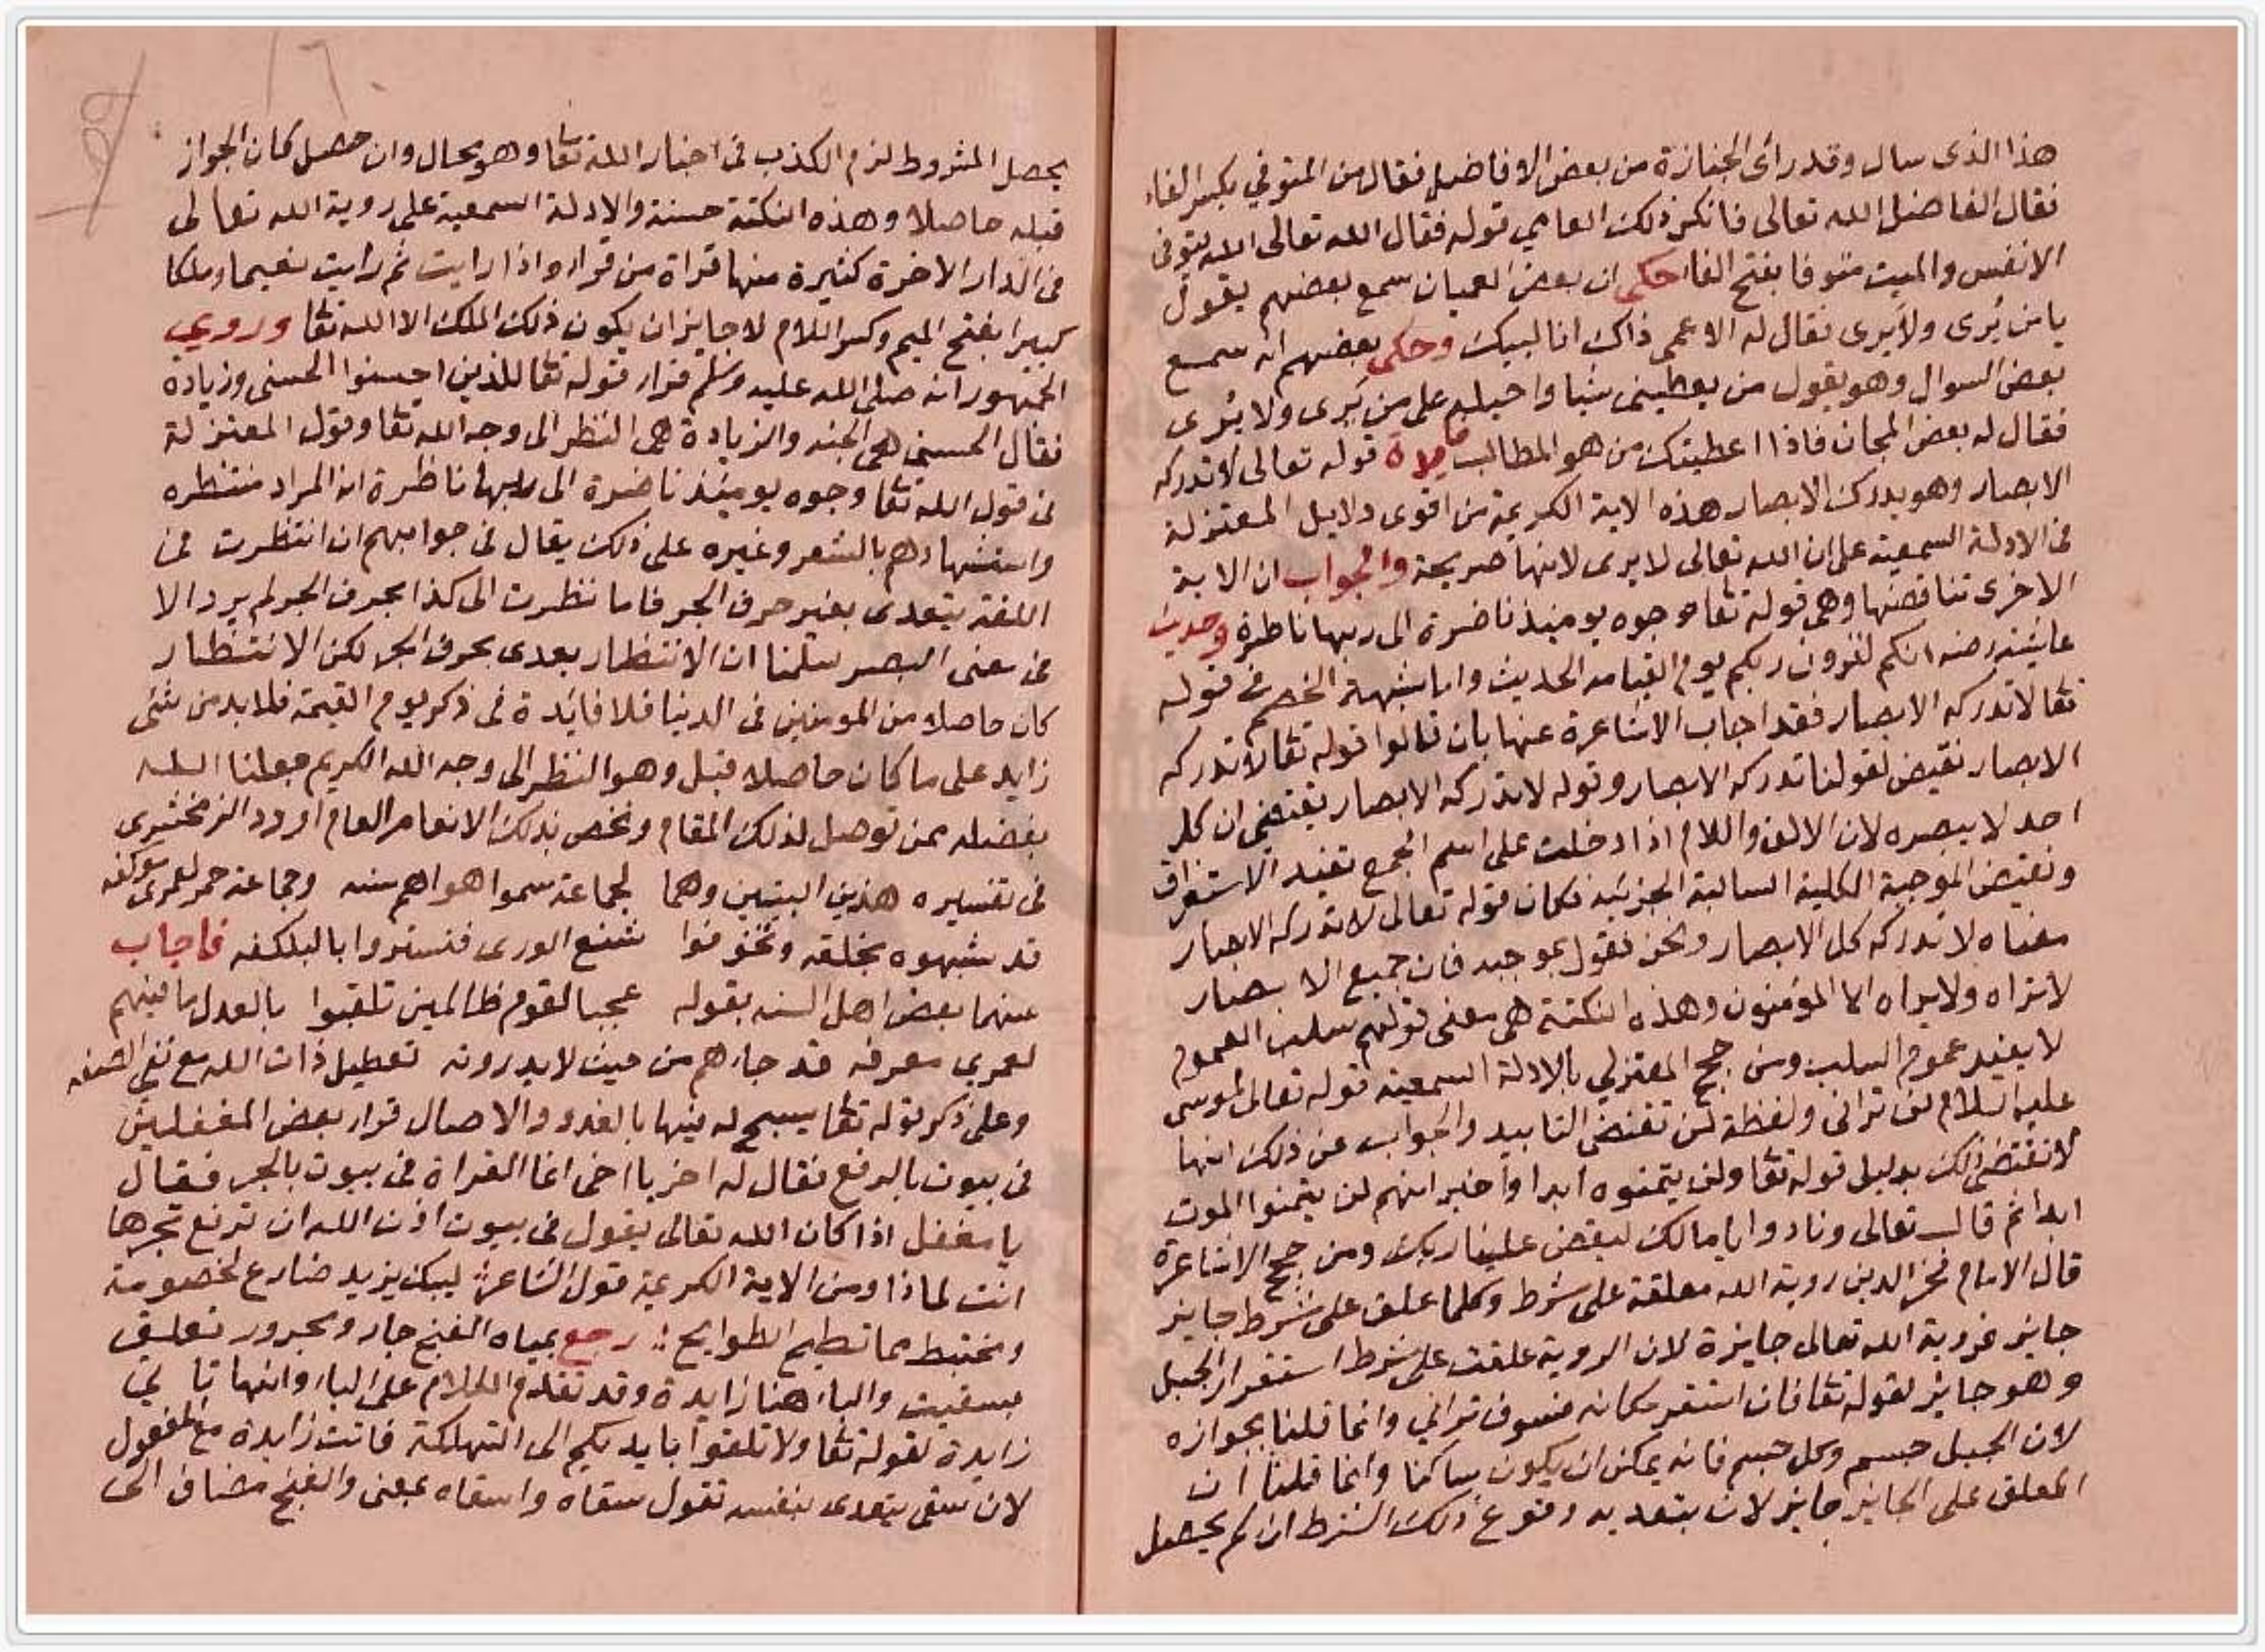 هذا الذى سال وقد رائ الجنازة من بعض الافاضل فقال من المتوفي بكسر الفاء
فقال الفاضل الله تعالى فانكر ذلك العامي قوله فقال الله تعالى الله يتوفى
الانفس والميت متوفا بفتح الفا حكى ان بعض العميان سمع بعضهم يقول
يا من يُرى ولا يَرى فقال له الاعمى ذاك انا لبيك وحكى بعضهم انه سمع
بعض السوال وهو يقول من يعطينى شيا واحيله على من يَرى ولا يُرى
فقال له بعض المجان فاذا اعطيتك من هو المطالب قوله تعالى لا تدركه
الابصار وهو يدرك الابصار هذه الاية الكريمة من اقوى دلايل المعتزلة
فى الادلة السمعية على ان الله تعالى لا يرى لانها صريحة والجواب ان الاية
الاخرى تناقضها وهى قوله تعا وجوه يوميذ ناضرة الى ربها ناظرة وحديث
عايشه رضه انكم لترون ربكم يوم القيامه الحديث واما شبهة الخصم فى قوله
تعا لا تدركه الابصار فقد اجاب الاشاعرة عنها بان قالوا قوله تعا لا تدركه
الابصار نقيض لقولنا تدركه الابصار وقوله لا تدركه الابصار يقتضي ان كل
احد لا يبصره لان الالف واللام اذا دخلت على اسم الجمع تفيد الاستغراق
ونقيض الموجبة الكلية السالبة الجزئيه فكان قوله تعالى لا تدركه الابصار
معناه لا تدركه كل الابصار ونحن نقول بموجبه فان جميع الابصار
لا تراه ولا يراه الا المؤمنون وهذه النكتة هى معنى قولهم سلب العموم
لا يفيد عموم السلب ومن حجج المعتزلي بالادلة السمعية قوله تعالى لموسى
عليه السلام لن ترانى ولفظة لن تقتضى التابيد والجواب عن ذلك انها
لا تقتضى ذلك بدليل قوله تعا ولن يتمنوه ابدا واخبر انهم لن يتمنوا الموت
ابدا ثم قال تعالى ونادوا يا مالك ليقض علينا ربك ومن حجج الاشاعرة
قال الامام فخر الدين روية الله معلقة على شرط وكلما علق على شرط جايز
جايز فروية الله تعالى جايزة لان الروية علقت على شرط استقرار الجبل
وهو جايز لقوله تعا فان استقر مكانه فسوف تراني وانما قلنا بجوازه
لان الجبل جسم وكل جسم فانه يمكن ان يكون ساكنا وانما قلنا ان
المعلق على الجايز جايز لان بتقديه وقوع ذلك الشرط ان لم يحصل
يحصل المشروط لزم الكذب فى اخبار الله تعا وهو محال وان حصل كان الجواز
قبله حاصلا وهذه النكتة حسنة والادلة السمعية على روية الله تعالى
فى الدار الاخرة كثيرة منها قراة من قرا واذا رايت ثم رايت نعيما وملكا
كبيرا بفتح الميم وكسر اللام لا جايز ان يكون ذلك الملك الا الله تعا وروي
الجمهور انه صلى الله عليه وسلم قرا قوله تعا للذين احسنوا الحسنى وزيادة
فقال الحسنى هى الجنه والزيادة هى النظر الى وجه الله تعا وقول المعتزلة
فى قول الله تعا وجوه يوميذ ناضرة الى ربها ناظرة ان المراد منتظره
واستشهادهم بالشعر وغيره على ذلك يقال فى جوابهم ان انتظرت فى
اللغة يتعدى بغير حرف الجر فاما نظرت الى كذا بحرف الجر لم يرد الا
فى معنى البصر سلمنا ان الانتظار يعدى بحرف الجر لكن الانتظار
كان حاصلا من المومنين فى الدنيا فلا فايدة فى ذكر يوم القيمة فلا بد من شى
زايد على ما كان حاصلا قبل وهو النظر الى وجه الله الكريم جعلنا الله
بفضله ممن توصل لذلك المقام وخص بذلك الانعام العام اورد الزمخشرى
فى تفسيره هذين البيتين وهما لجماعة سموا هواهم سنه وجماعة حمر لعمرى موكفه
قد شبهوه بخلقه وتخوفوا شنع الورى فتستروا بالبلكفه فاجاب
عنهما بعض اهل السنه بقوله عجبا لقوم ظالمين تلقبوا بالعدل ما فيهم
لعمري معرفه قد جاءهم من حيث لا يدرونه تعطيل ذات الله مع نفى الصفه
وعلى ذكر قوله تعا يسبح له فيها بالغدو والاصال قرا بعض المغفلين
فى بيوت بالرفع فقال له اخر يا اخى انما القراة فى بيوت بالجر فقال
يا مغفل اذا كان الله تعالى يقول فى بيوت اذن الله ان ترفع تجرها
انت لماذا ومن الاية الكريمة قول الشاعر ليبك يزيد ضارع لخصومة
ومختبط مما تطيح الطوايح رجع بمياه الغنج جار ومجرور تعلق
بسقيت والباء هنا زايدة وقد تقدم الكلام على الباء وانها تاتي
زايدة لقوله تعا ولا تلقوا بايديكم الى التهلكة فاتت زايدة مع المفعول
لان سقى يتعدى بنفسه تقول سقاه واسقاه بمعنى والغنج مضاف الى